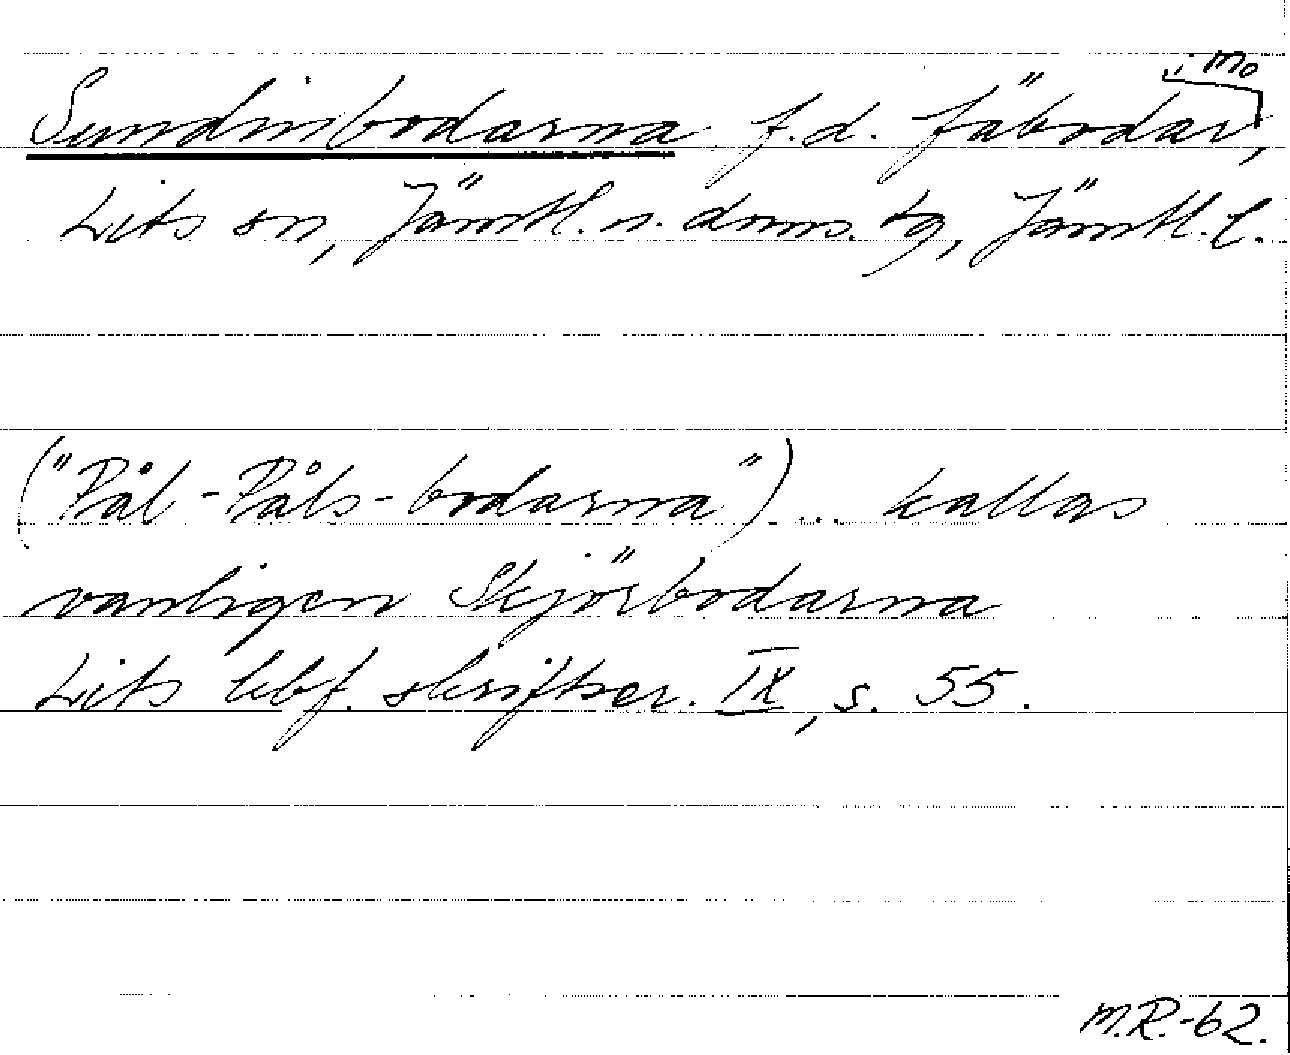 Sundinbodarna f.d. fäbodar i Mo,
Lits sn, Jämtl. n. doms. tg, Jämtl. l.
("Pål-Påls-bodarna") ... kallas
vanligen Skjörbodarna
Lits hbf. skriftser. IX, s. 55.
M.R.-62.